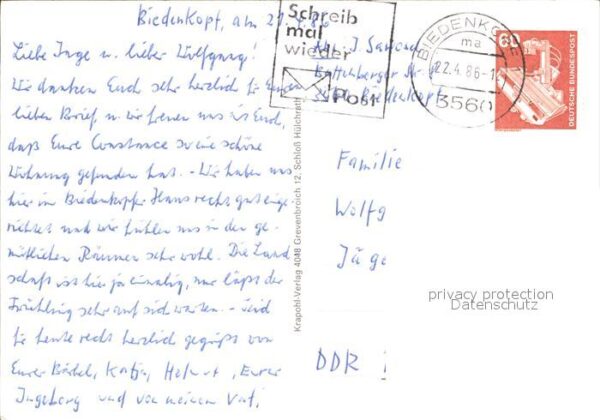 Biedenkopf, am 21.4.86
Liebe Inge u. lieber Wolfgang!
Wir danken Euch sehr herzlich für Euren
lieben Brief u. wir freuen uns mit Euch,
daß Eure Constance so eine schöne
Wohnung gefunden hat. - Wir haben uns
hier im Biedenkopfer Haus recht gut einge-
richtet und wir fühlen uns in den ge-
mütlichen Räumen sehr wohl. Die Land-
schaft ist hier ja einmalig, nur läßt der
Frühling sehr auf sich warten. - Seid
für heute recht herzlich gegrüßt von
Eurer Bärbel, Katja, Helmut, Eurer
Ingeborg und von meinem Vati.
Schreib
mal
wieder
Post
BIEDENKOPF 1
ma
22.4.86-1
3560
60
DEUTSCHE BUNDESPOST
Abs. J.
Biedenkopf
Krapohl-Verlag 4048 Grevenbroich 12, Schloß Hülchrath
Familie
Wolfg
Jäge
DDR
privacy protection
Datenschutz